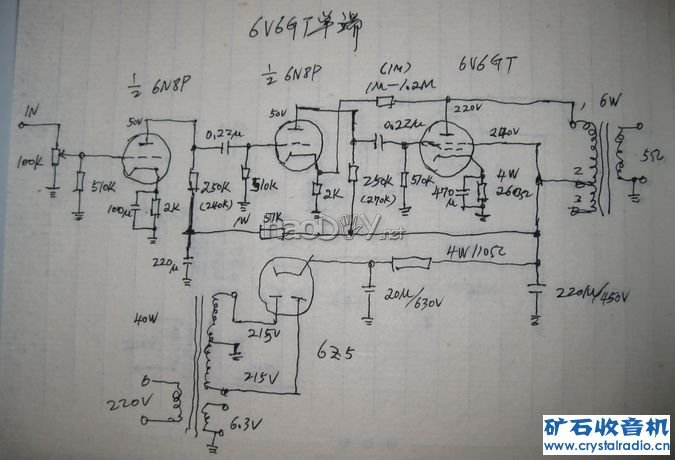 6V6GT单端
½ 6N8P
½ 6N8P
6V6GT
(1M)
1M-1.2M
IN
50V
50V
220V
240V
6W
100K
0.22μ
0.22μ
5Ω
510K
510K
510K
250K
(240K)
250K
(270K)
100μ
2K
2K
470μ
4W
260Ω
2
3
1W
51K
220μ
4W/10Ω
20μ/630V
220μ/450V
40W
215V
215V
6Z5
220V
6.3V
haoDIY.net
矿石收音机
www.crystalradio.cn